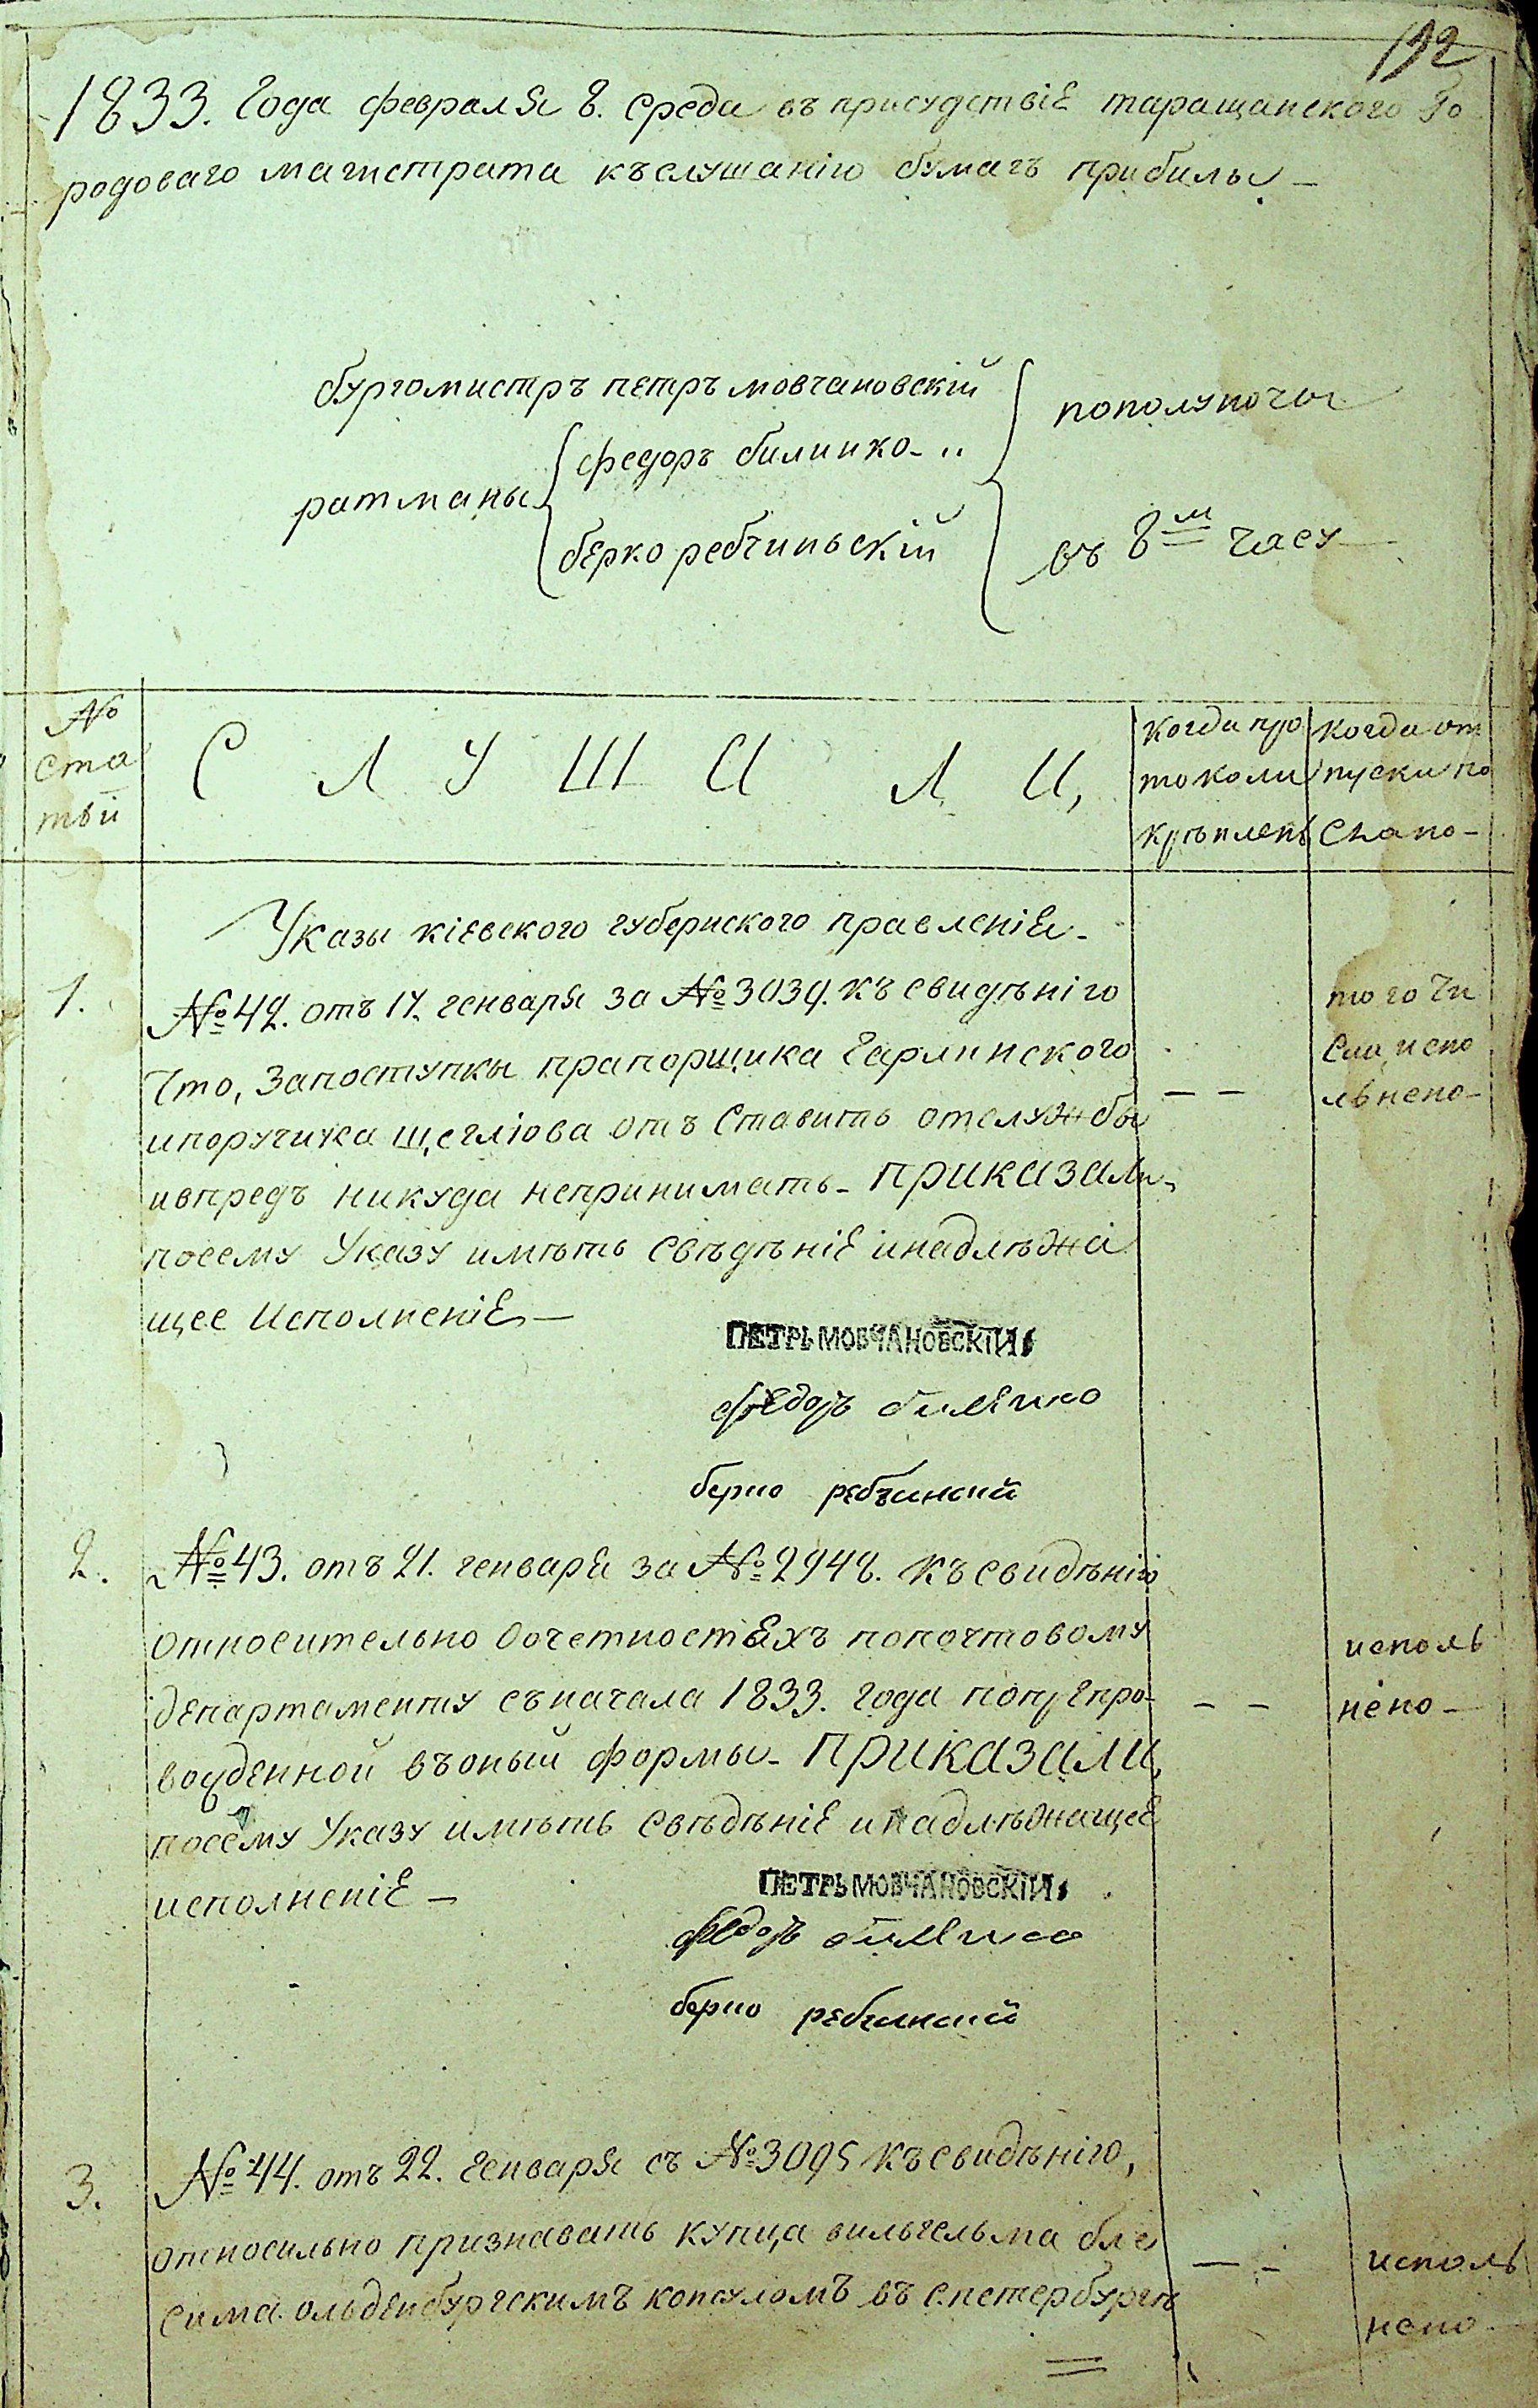 192
1833. Года февраля 8. среда въ присудствіе таращанского Го
родоваго магистрата къслушанію бумагъ прибили –
бургомистръ петръ мовчановскій
пополуночы
ратманы
федоръ билинко
берко ребчиньскій
въ 8м часу
№ ста тьй
С Л У Ш А Л И,
когда про токолы крѣплены
когда от пуски по слано –
Указы кіевского губернского правленіе.
1.
№ 42. отъ 17. генваря за № 3039. къ свидѣнію
Что, Запоступкы прапорщика Гарлинского
ипоручика щегліова отъ Ставить отслужбы
ивпредъ никуда непринимать – приказали,
посему Указу имѣть Свѣдѣніе инадлѣжа
щее Исполненіе –
того чи
сла испо
льнено –
ПЕТРЬ МОВЧАНОВСКІЙ
федоръ билинко
берко ребчинский
2.
№ 43. отъ 21. генваря за № 2948. къ свидѣнію
относительно оочетностяхъ попочтовому
департаменту съначала 1833. года попрепро-
вожденной въоный формы – приказали,
посему Указу имѣть Свѣдѣніе инадлѣжащее
исполненіе –
исполь
нено –
ПЕТРЬ МОВЧАНОВСКІЙ
федоръ билинко
берко ребчинский
3.
№ 44. отъ 22. генваря съ № 3095 къ свидѣнію,
относильно признавать купца вильгельма бле
сима ольденбургскимъ консуломъ въ с.петербургѣ
исполь
нено –